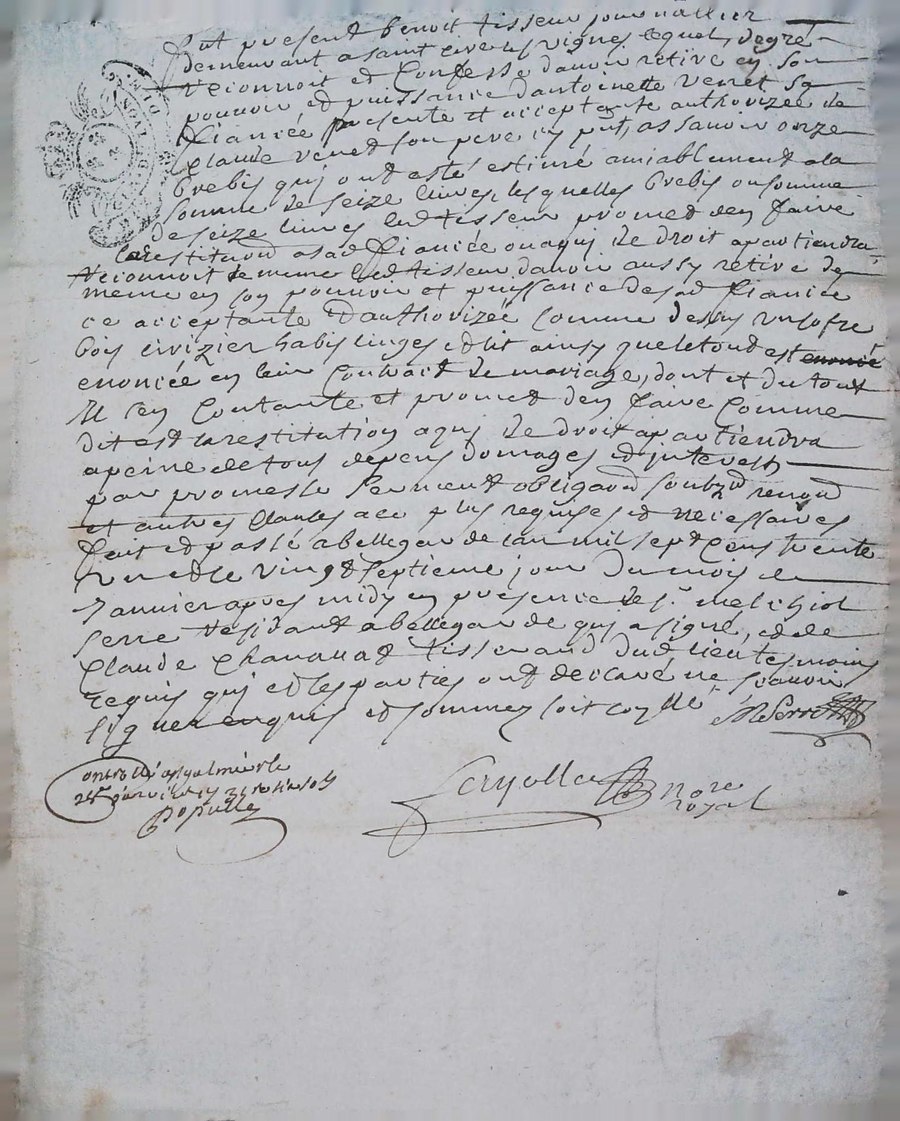 fut present benoit tisseur journallier
demeurant a saint cire les vignes lequel, de gré
reconnoit et Confesse davoir retiré en son
pouvoir et puissance dantoinette venet sa
fiancée presente et acceptante authorizée de
Claude venet son pere icy put, assavoir onze
brebis quj ont estés estimé amiablement ala
somme de seize livres, lesquelles brebis ou somme
de seize livres led tisseur promet den faire
la restitution asad fiancée ou aquj de droit apartiendra
Reconnoit de meme led tisseur davoir aussy retiré de
meme en son pouvoir et puissance desad fiancée
ce acceptante et authorizée Comme dessus un cofre
bois cirizier habis linges et lit ainsy que le tout est enoncé
enoncée en leur Contract de mariage, dont et du tout
Il sen Contante et promet den faire Comme
dit est la restitution aquj de droit apartiendra
apeine de tous depens domages et jnterests
par promesse serment obligaon soubzon renoon
et autres Clauses ace plus requises et necessaires
fait et passé abellegarde lan mil sept Cens trente
un et le vingt septieme jour du mois de
Janvier apres midy en presence de sr. melchiol
serre residant abellegarde quj a signé, et de
Claude Chanavat tisserand dud lieu tesmoins
requis quj et les parties ont declaré ne scavoir
signer enquis et sommez soit coñllé MSerre
ontrollé astgalmier le
janvier 1731 Re
Popullu
nore
royal